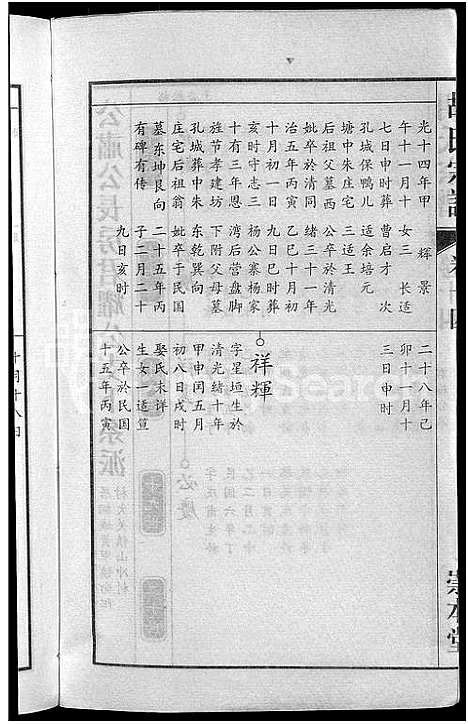 胡氏宗譜
卷十四
崇本堂
光十四年甲
午十一月十
七日申时葬
孔城保鸭儿
塘中朱庄宅
后祖父墓西
妣卒於清同
治五年丙寅
十月初一日
亥时守志三
十有三年恩
旌节孝建坊
孔城葬中朱
庄宅后祖翁
墓东坤艮向
有碑有传
輝景
女三 长适
曹启才 次
适余培元
三适王
公卒於清光
绪三十一年
乙巳十月初
九日巳时葬
杨公寨杨家
湾后营盘脚
东乾巽向
妣卒于民国
二十五年丙
子二月二十
九日亥时
二十八年己
卯十一月十
三日申时
祥輝
字星垣生於
清光绪十年
甲申闰五月
初八日戌时
娶氏未详
生女一适笪
公卒於民国
十五年丙寅
十月十八日